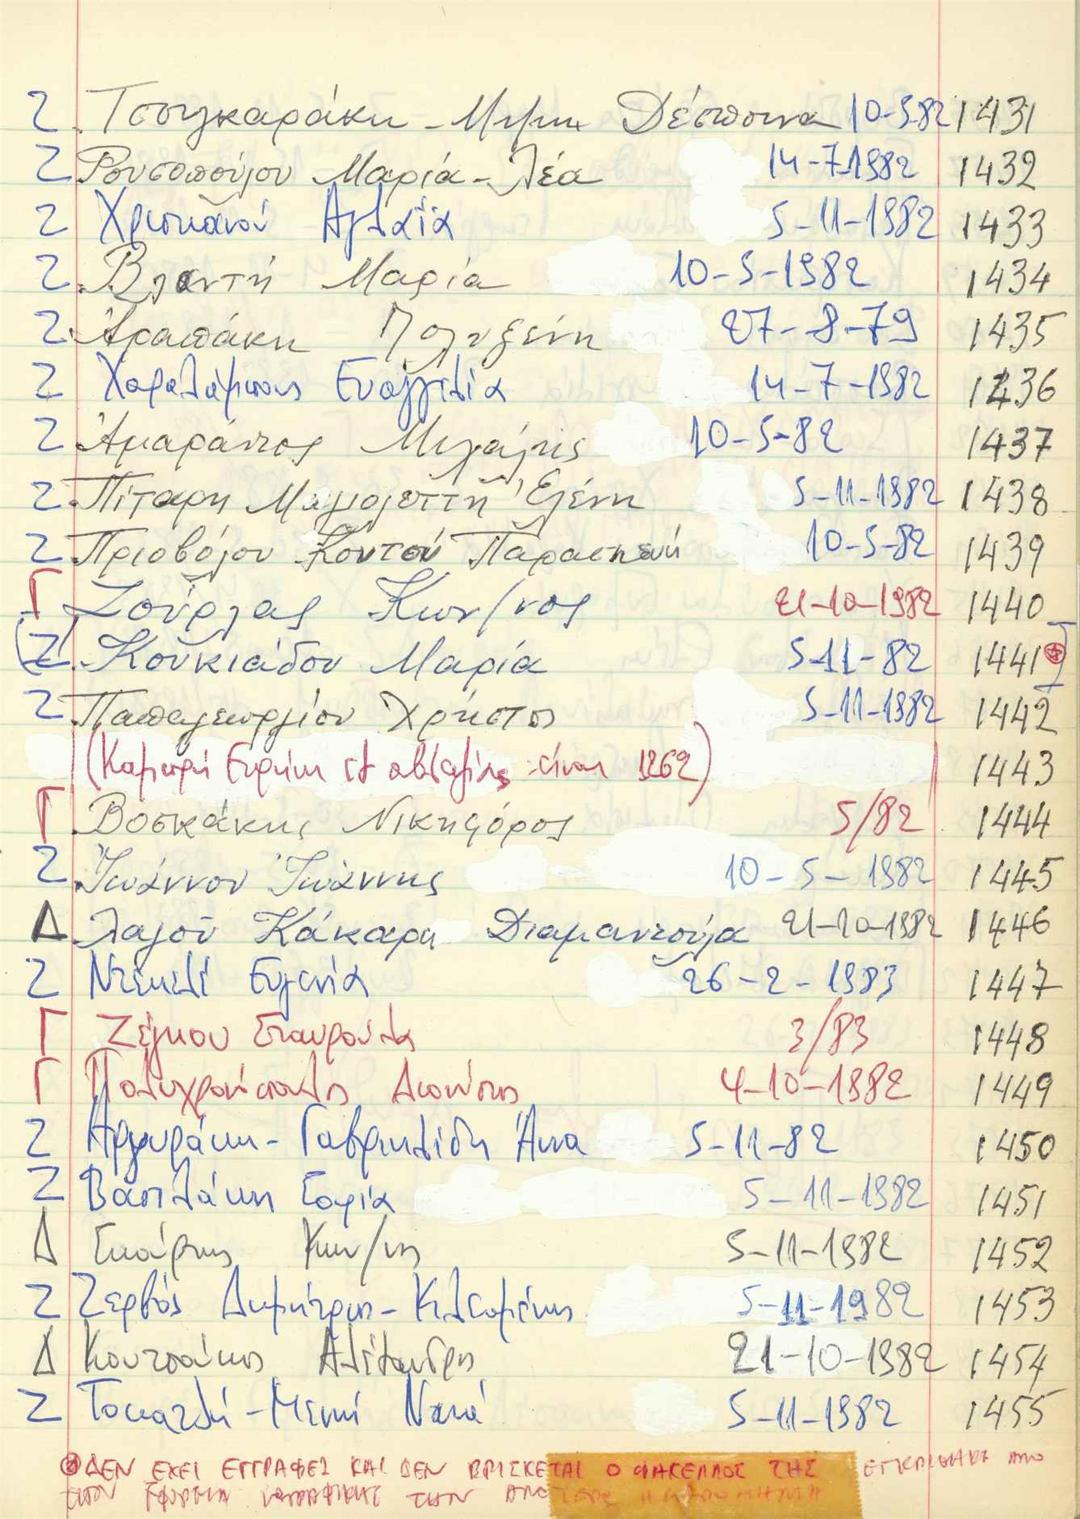 Ζ Τσουγκαράκη - Μιμη Δέσποινα 10-5-82 1431
Ζ Ρουσοπούλου Μαρία-Λέα 14-7-1982 1432
Ζ Χριστιανού Αγλαΐα 5-11-1982 1433
Ζ Βλαντή Μαρία 10-5-1982 1434
Ζ Αραπάκη Πολυξένη 27-8-79 1435
Ζ Χαραλάμπους Ευαγγελία 14-7-1982 1436
Ζ Αμαράντος Μιχάλης 10-5-82 1437
Ζ Πίταρη Ελένη 5-11-1982 1438
Ζ Πριοβόλου Κοντού Παρασκευή 10-5-82 1439
Γ Ζούρλας Κων/νος 21-10-1982 1440
(Ζ) Κουκιάδου Μαρία 5-11-82 1441
Ζ Παπαγεωργίου Χρήστος 5-11-1982 1442
(Ειρήνη είναι 1262) 1443
Γ Βοσκάκης Νικηφόρος 5/82 1444
Ζ Ιωάννου Ιωάννης 10-5-1982 1445
Δ Λαγού Κάκαρη Διαμαντούλα 21-10-1982 1446
Ζ Ευγενία 26-2-1983 1447
Γ Ζέγκου Σταυρούλα 3/83 1448
Γ Πολυχρονόπουλος Διονύσης 4-10-1982 1449
Ζ Αργυράκη - Γαβριηλίδη Άννα 5-11-82 1450
Ζ Βασιλάκη Σοφία 5-11-1982 1451
Δ Κων/νος 5-11-1982 1452
Ζ Ζερβός Δημήτριος - Κλεομένης 5-11-1982 1453
Δ Κουτσάκης Αλέξανδρος 21-10-1982 1454
Ζ Τοκατλή - Νανά 5-11-1982 1455
ΔΕΝ ΕΧΕΙ ΕΓΓΡΑΦΕΙ ΚΑΙ ΔΕΝ ΒΡΙΣΚΕΤΑΙ Ο ΦΑΚΕΛΛΟΣ ΤΗΣ ΕΓΚΡΙΘΗΚΕ ΑΠΟ
ΤΗΝ ΤΗΝ